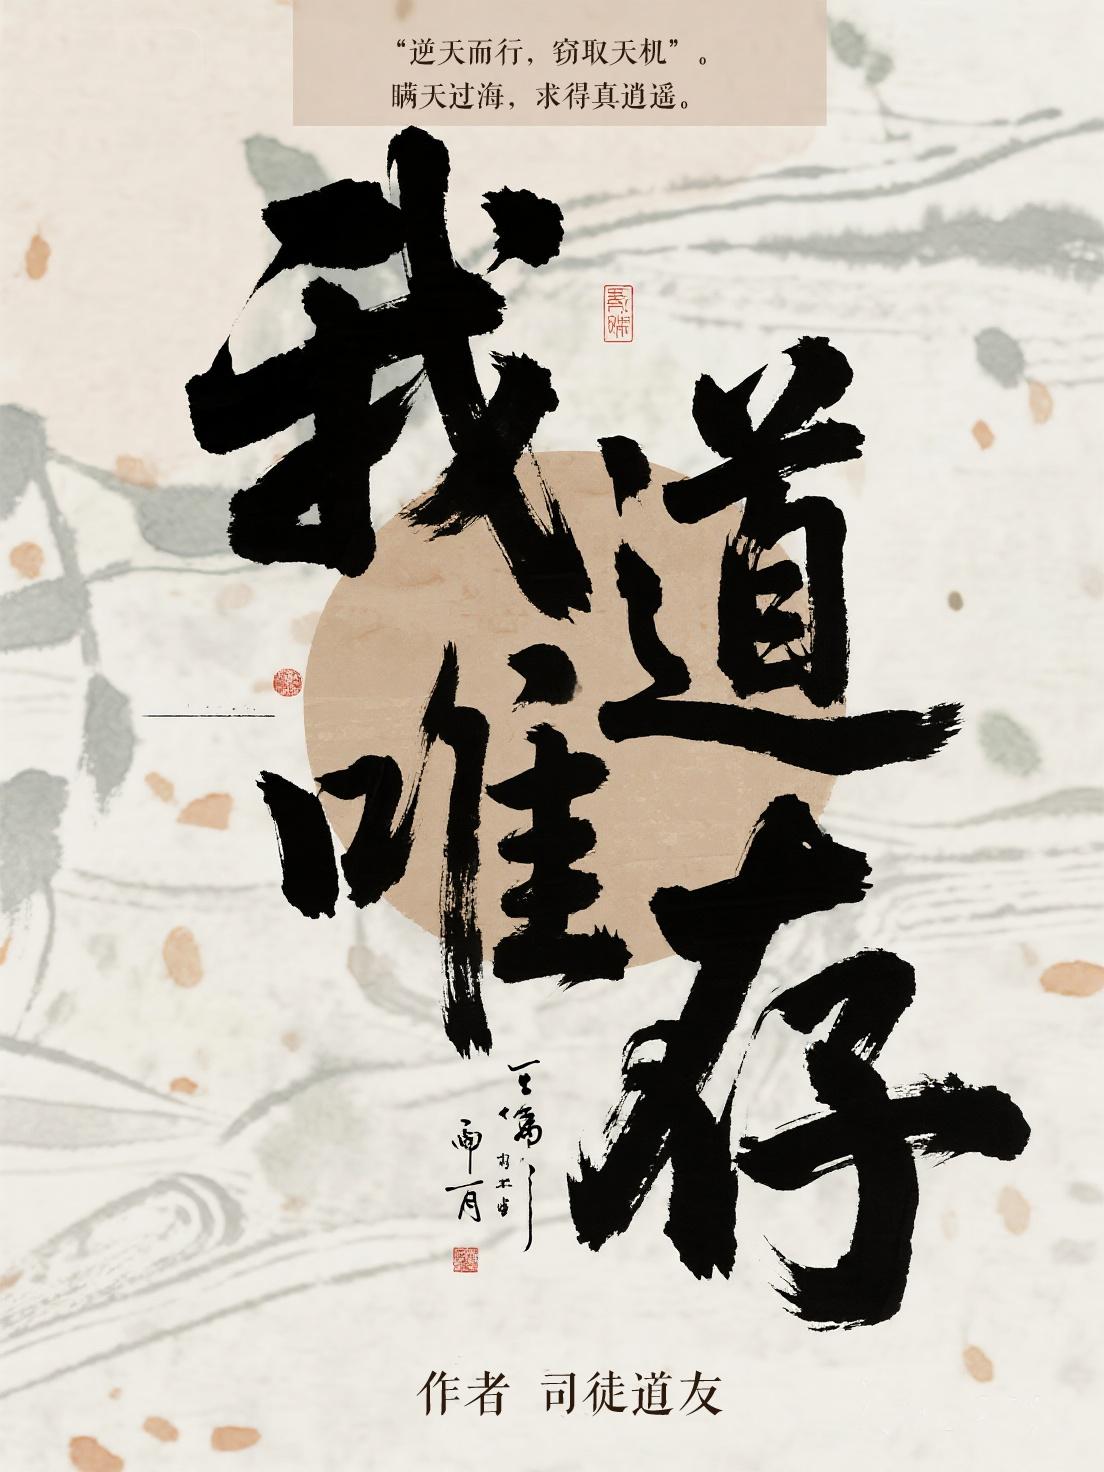 “逆天而行，窃取天机”。
瞒天过海，求得真逍遥。
我道唯存
作者 司徒道友